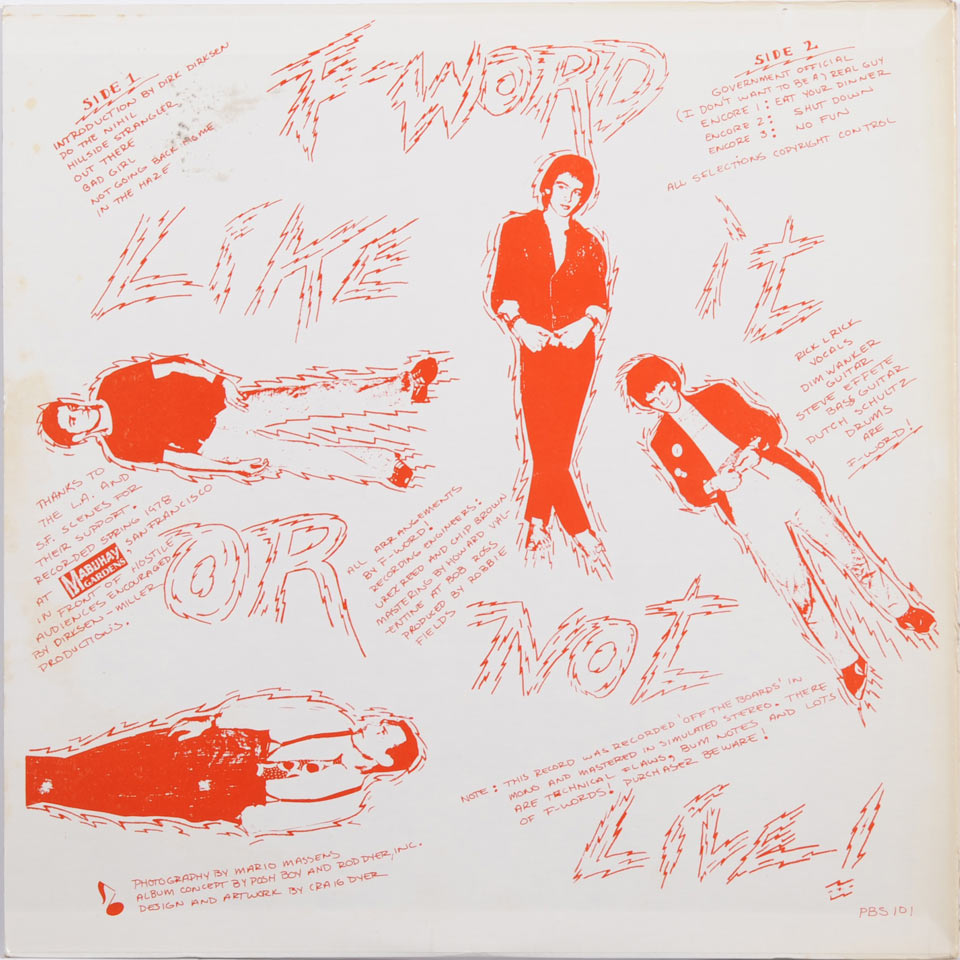 F-WORD
SIDE 1
INTRODUCTION BY DIRK DIRKSEN
DO THE NIHIL
HILLSIDE STRANGLER
OUT THERE
BAD GIRL
NOT GOING BACK HOME
IN THE HAZE
SIDE 2
GOVERNMENT OFFICIAL
(I DON'T WANT TO BE A) REAL GUY
ENCORE 1: EAT YOUR DINNER
ENCORE 2: SHUT DOWN
ENCORE 3: NO FUN
ALL SELECTIONS COPYRIGHT CONTROL
LIKE IT
RICK L RICK
VOCALS
DIM WANKER
GUITAR
STEVE EFFETE
BASS GUITAR
DUTCH SCHULTZ
DRUMS
ARE
F-WORD!
THANKS TO
THE L.A. AND
S.F. SCENES FOR
THEIR SUPPORT.
RECORDED SPRING 1978
AT MABUHAY GARDENS, SAN FRANCISCO
IN FRONT OF HOSTILE
AUDIENCES ENCOURAGED
BY DIRKSEN-MILLER
PRODUCTIONS.
OR
ALL ARRANGEMENTS
BY F-WORD!
RECORDING ENGINEERS:
UREZ REED AND CHIP BROWN
MASTERING BY HOWARD VAL-
-ENTINE AT BOB ROSS
PRODUCED BY ROBBIE
FIELDS
NOT
NOTE: THIS RECORD WAS RECORDED 'OFF THE BOARDS' IN
MONO AND MASTERED IN SIMULATED STEREO. THERE
ARE TECHNICAL FLAWS, BUM NOTES AND LOTS
OF F-WORDS. PURCHASER BEWARE!
LIVE!
PHOTOGRAPHY BY MARIO MASSENS
ALBUM CONCEPT BY POSH BOY AND ROD DYER, INC.
DESIGN AND ARTWORK BY CRAIG DYER
PBS 101